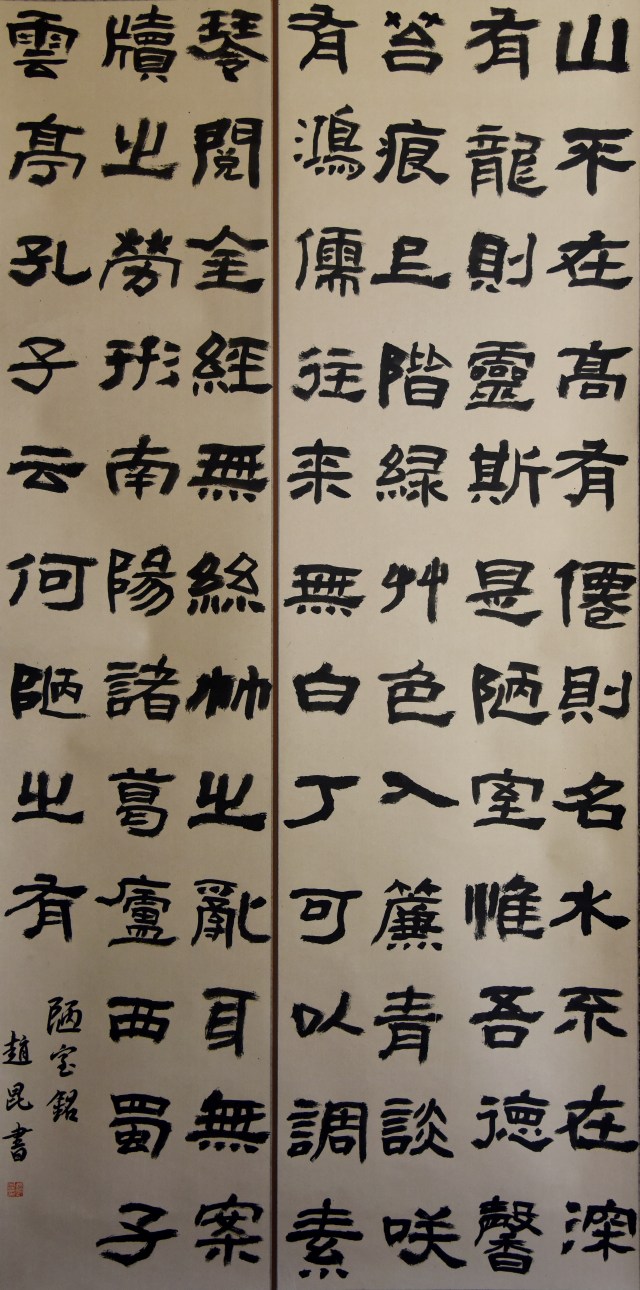 山不在高有僊則名水不在深
有龍則靈斯是陋室惟吾德馨
苔痕上階緑艸色入簾青談咲
有鴻儒往来無白丁可以調素
琴閲金經無絲竹之亂耳無案
牘之勞形南陽諸葛廬西蜀子
雲亭孔子云何陋之有
陋室銘
趙昆書